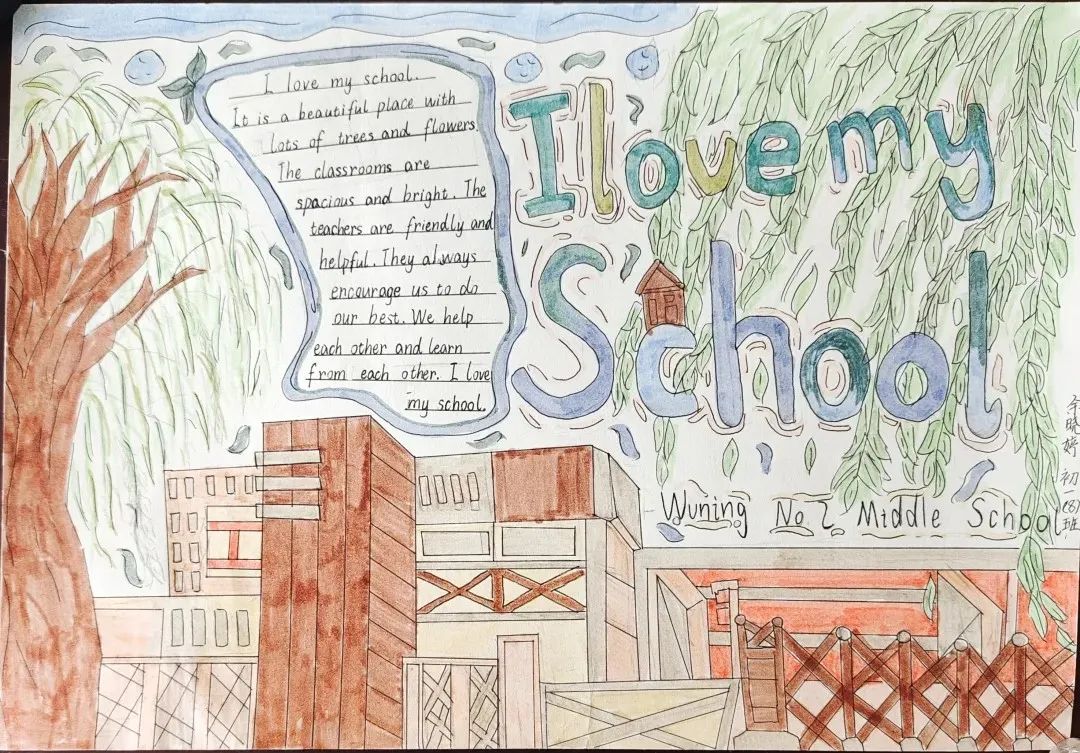 I love my school.
It is a beautiful place with
lots of trees and flowers.
The classrooms are
spacious and bright. The
teachers are friendly and
helpful. They always
encourage us to do
our best. We help
each other and learn
from each other. I love
my school.
I love my
School
Wuning No.2 Middle School
晓婷 初一(8)班